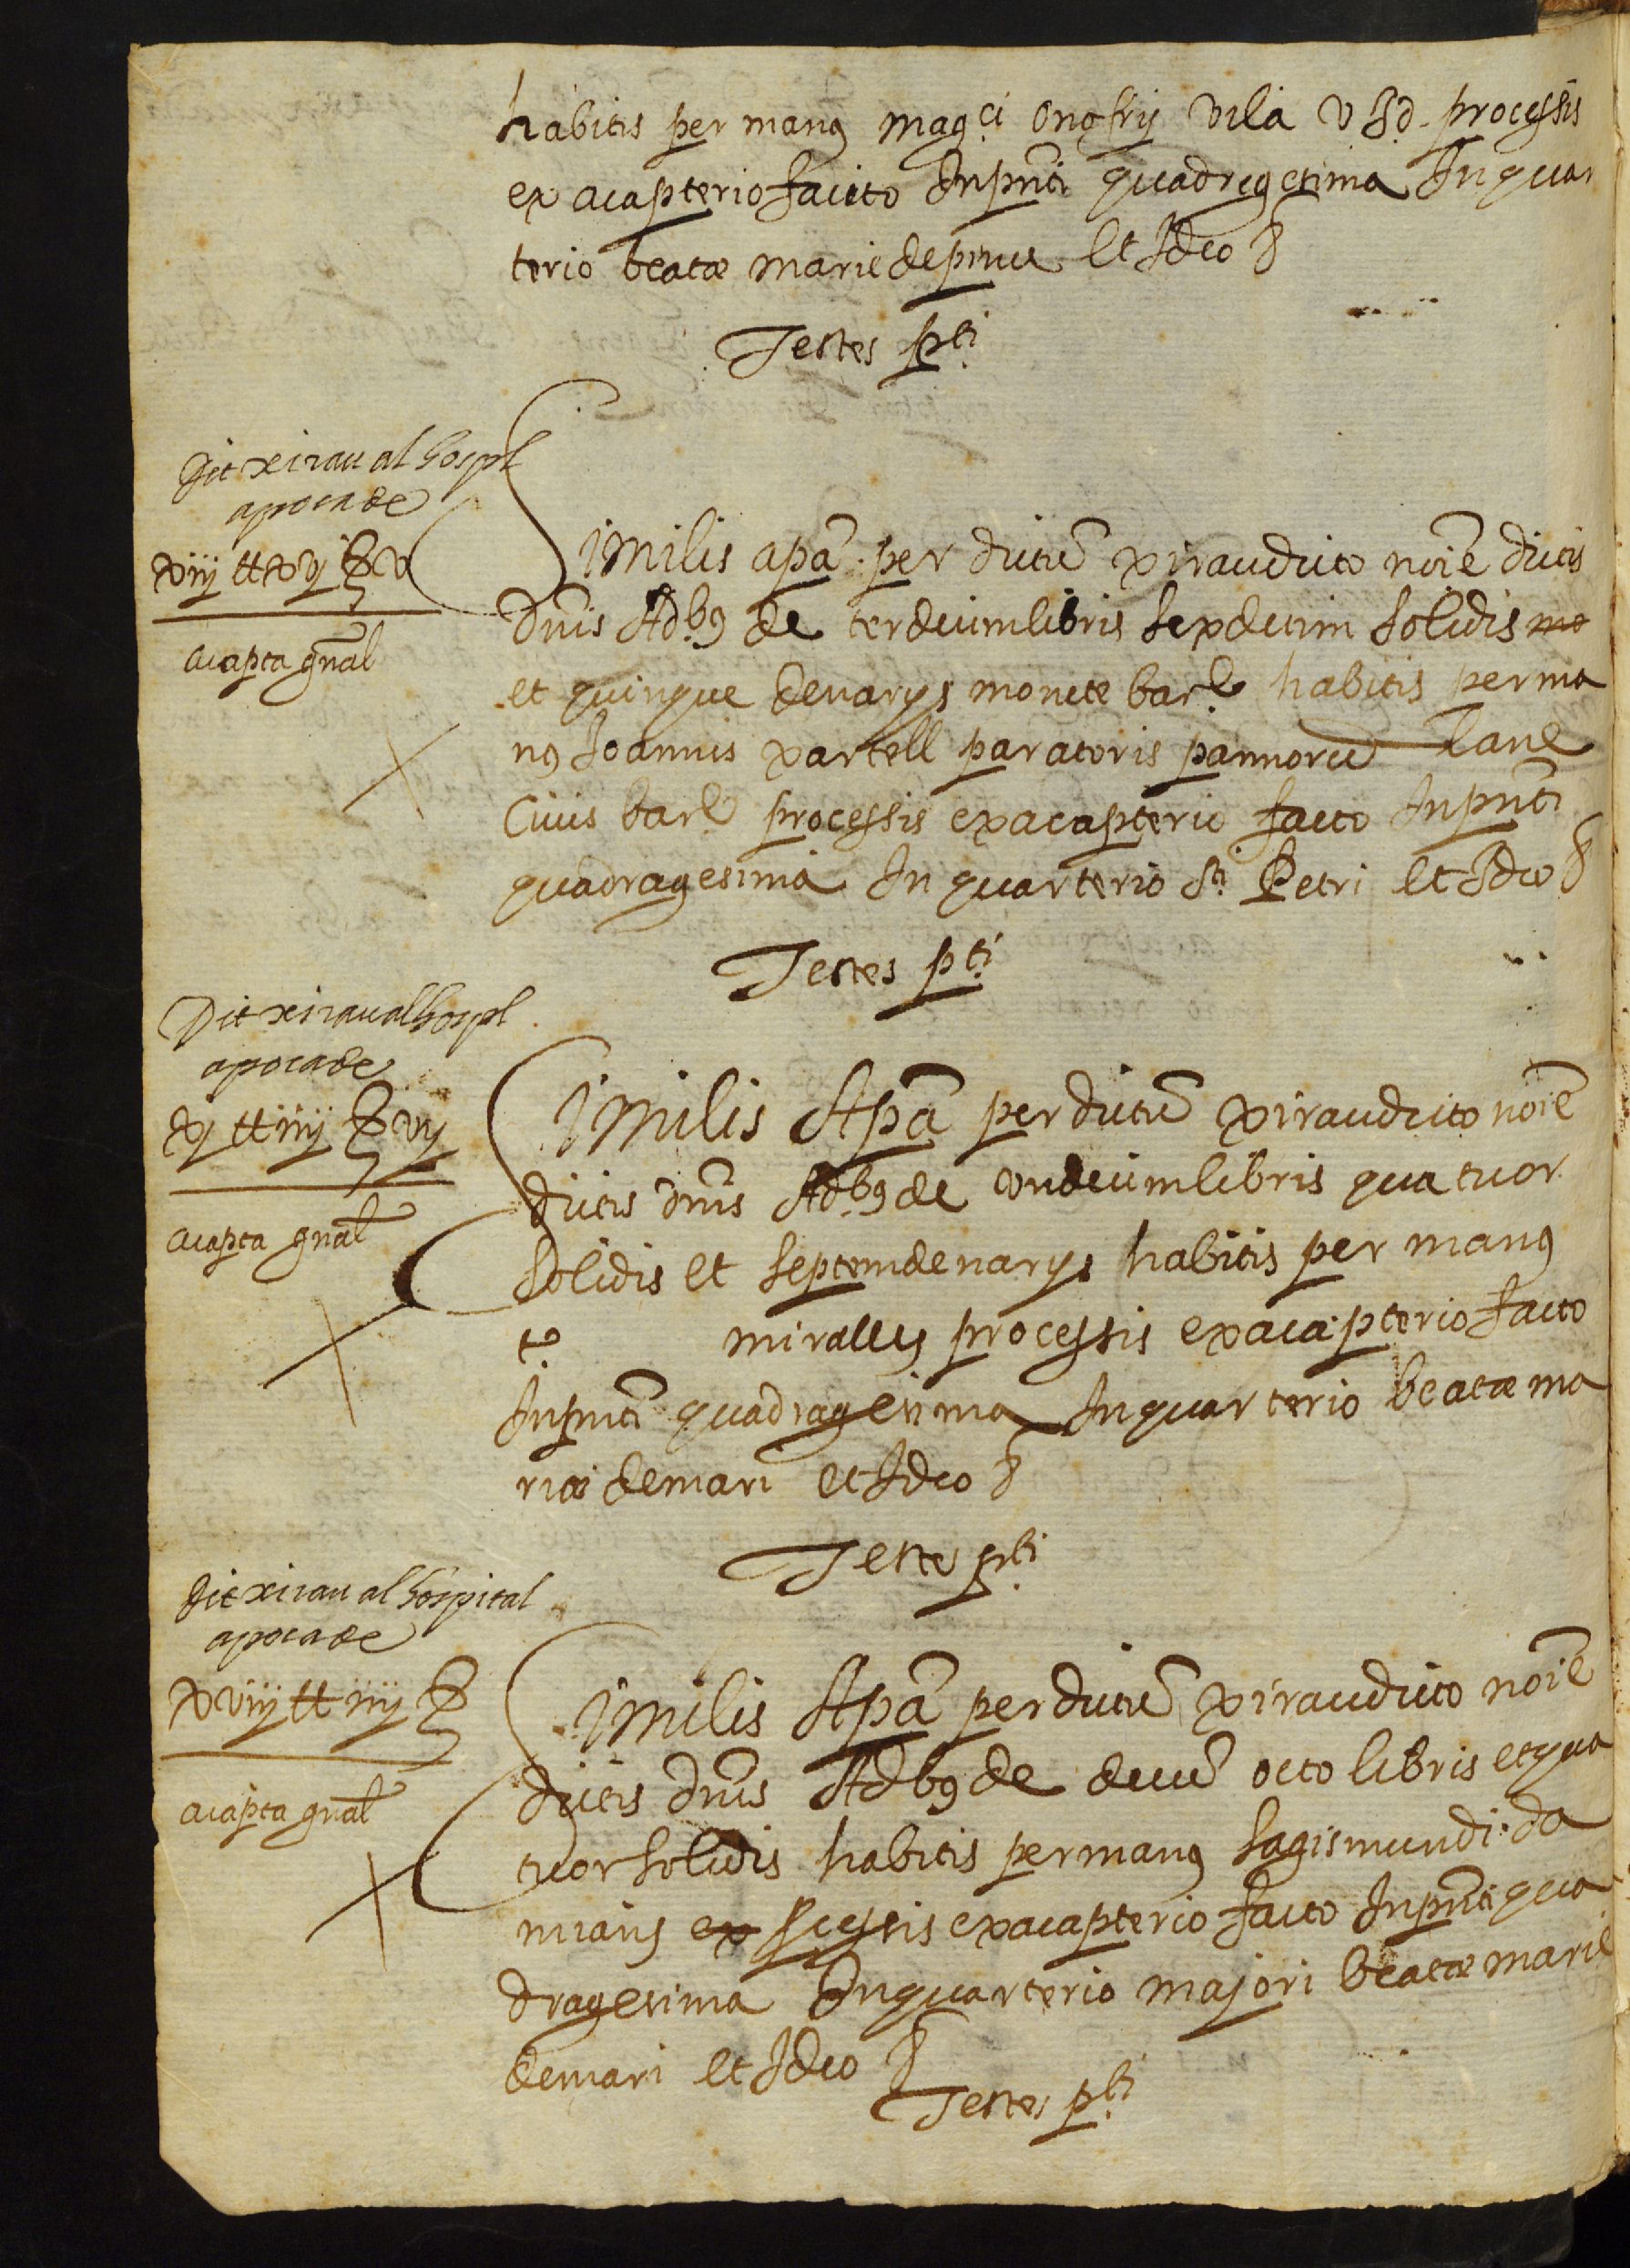 habitis per manꝰ mag.ci onofrij vila V J d. processis
ex acapterio facito In pnti quadregesima In quar
terio beatæ marie de pinu et Ideo &
Testes pti
Dit xirau al hospl
apoca de
xiij ₶ xvj ß v
acapta gnal
Similis apa. per dictu xirau dicto noie dictis
Dnis Adbꝰ de terdecim libris sexdecim solidis mo
et quinque denarijs monete barl habitis per ma
nꝰ Joannis xartell paratoris pannoru lane
Ciuis barl processis ex acapterio facto In pnti
quadragesima In quarterio Sti Petri et Ideo &
Testes pti
Dit xirau al hospl
apoca de
xj ₶ iiij ß vij
acapta gnal
Similis Apa per dictu xirau dicto noie
dictis dnis Adbꝰ de vndecim libris quatuor
solidis et septem denarijs habitis per manꝰ
tº mirallis processis ex acapterio facto
In pnti quadragesima In quarterio beatæ ma
riæ de mari et Ideo &
Teste pti
Dit xirau al hospital
apoca de
xviij ₶ iiij ß
acapta gnal
Similis Apa per dictu xirau dicto noie
dictis dnis Adbꝰ de decē octo libris et qua
tuor solidis habitis per manꝰ sagismundi da
mians ex pcessis ex acapterio facto In pnti qua
dragesima In quarterio majori beatæ marie
de mari et Ideo &
Testes pti